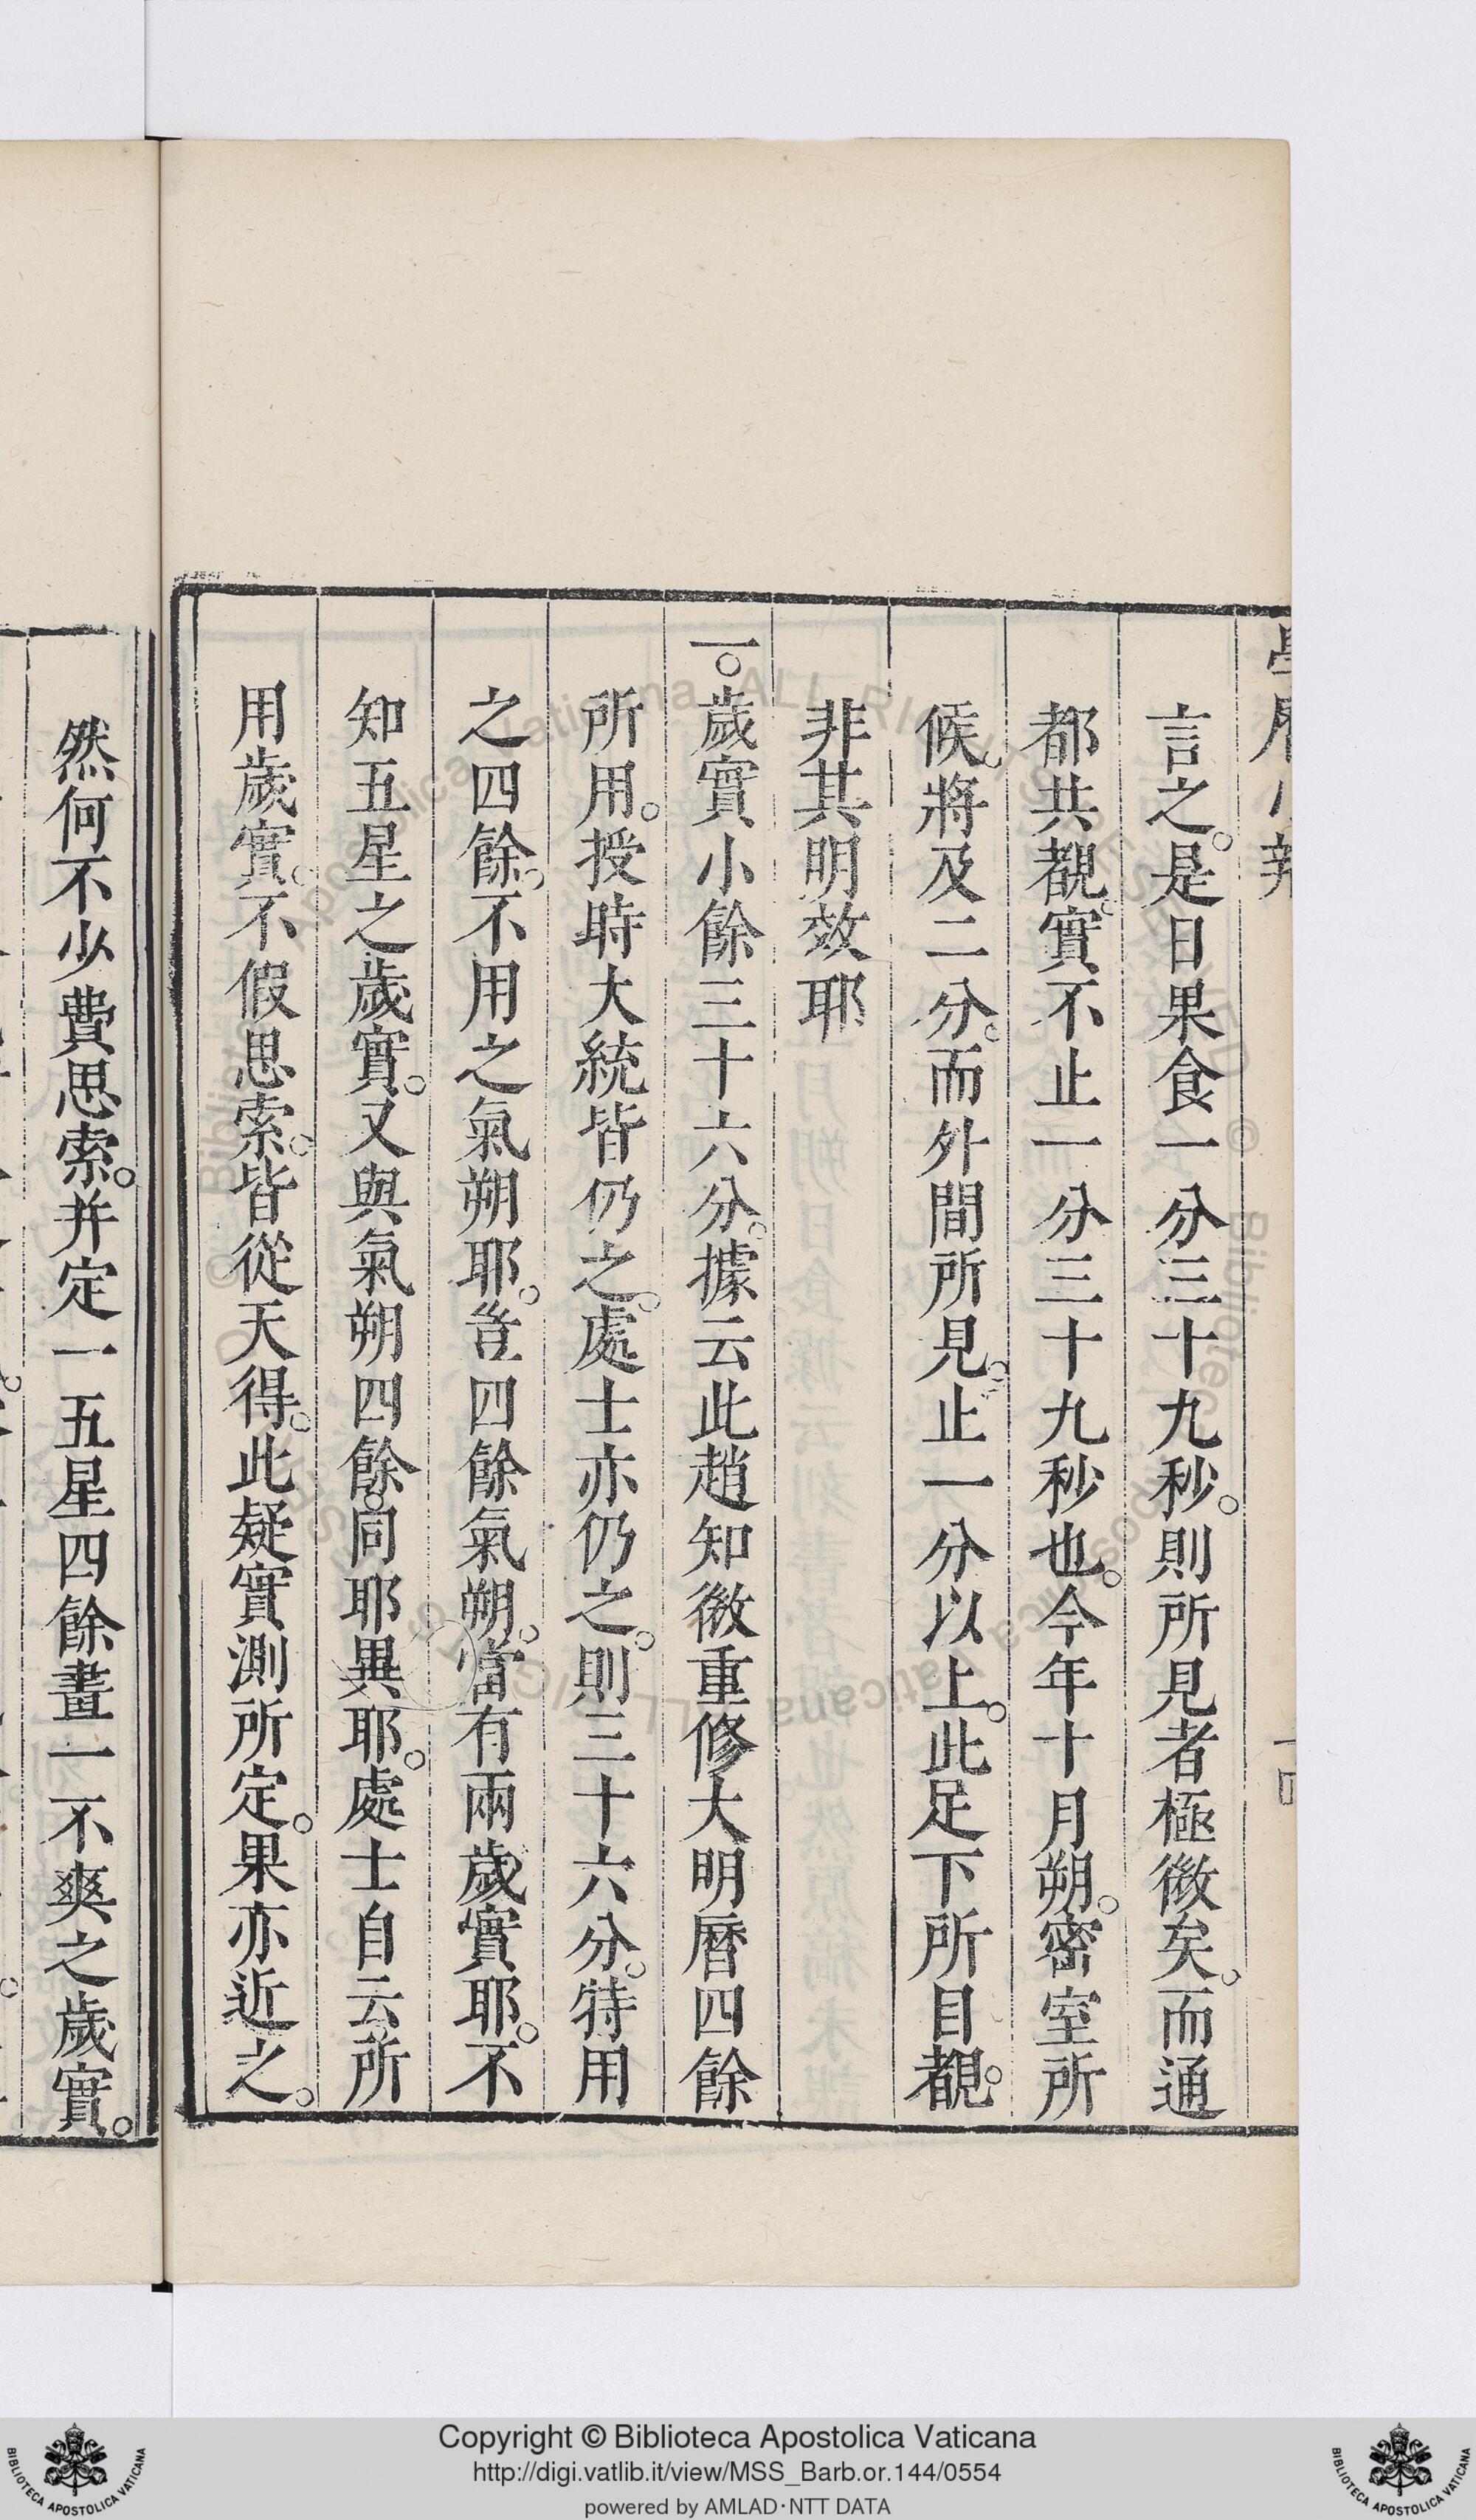 言之。是日果食一分三十九秒。則所見者極微矣。而通
都共覩。實不止一分三十九秒也。今年十月朔。密室所
候。將及二分。而外間所見。止一分以上。此足下所目覩。
非其明效耶
一。歲實小餘三十六分。據云此趙知微重修大明曆四餘
所用。授時大統皆仍之。處士亦仍之。則三十六分。特用
之四餘。不用之氣朔耶。豈四餘氣朔。當有兩歲實耶。不
知五星之歲實。又與氣朔四餘。同耶異耶。處士自云所
用歲實。不假思索。皆從天得。此疑實測所定。果亦近之。
然何不少費思索。并定一五星四餘畫一不爽之歲實。
Copyright © Biblioteca Apostolica Vaticana
http://digi.vatlib.it/view/MSS_Barb.or.144/0554
powered by AMLAD·NTT DATA
BIBLIOTECA APOSTOLICA VATICANA
BIBLIOTECA APOSTOLICA VATICANA